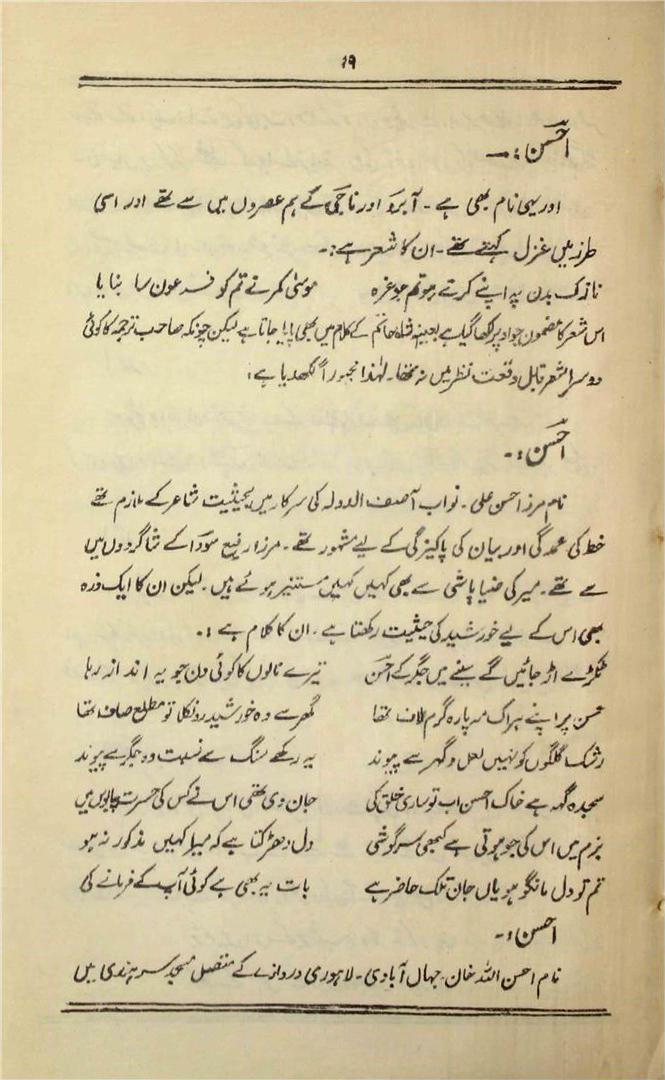 ۱۹
احسن :۔
اور یہی نام بھی ہے ۔ آبرو اور ناجی کے ہم عصروں میں سے تھے اور اسی
طرز میں غزل کہتے تھے ۔ ان کا شعر ہے :۔
نازک بدن پہ اپنے کرتے ہو تم جو غرہ موسیٰ کمر نے تم کو فرعون سا بنایا
اس شعر کا مضمون جو اوپر لکھا گیا ہے بعینہٖ شاہ حاتم کے کلام میں بھی پایا جاتا ہے لیکن چونکہ صاحب ترجمہ کا کوئی
دوسرا شعر قابل وقعت نظر میں نہ تھا ۔ لہٰذا مجبوراً لکھدیا ہے ؛
احسن :۔
نام مرزا احسن علی ۔ نواب آصف الدولہ کی سرکار میں بحیثیت شاعر کے ملازم تھے
خط کی عمدگی اور بیان کی پاکیزگی کے لیے مشہور تھے ۔ مرزا رفیع سودا کے شاگردوں میں
سے تھے ۔ میر کی ضیا پاشی سے بھی کہیں کہیں مستنیر ہوئے ہیں ۔ لیکن ان کا ایک ذرہ
بھی اس کے لیے خورشید کی حیثیت رکھتا ہے ۔ ان کا کلام ہے :۔
ٹکڑے اڑ جائیں گے سینے میں جگر کے احسن تیرے نالوں کا کوئی دن جو یہ انداز رہا
حسن پر اپنے ہر اک مہ پارہ گرم لاف تھا گھر سے وہ خورشید رو نکلا تو مطلع صاف تھا
رشک گلگوں کو نہیں لعل و گہر سے پیوند یہ رکھے سنگ سے نسبت وہ جگر سے پیوند
سجدہ گہہ ہے خاک احسن اب تو ساری خلق کی جان دی تھی اس نے کس کی حسرت میں
بزم میں اس کی جو ہوتی ہے کبھی سرگوشی دل دھڑکتا ہے کہ میرا کہیں مذکور نہ ہو
تم تو دل مانگو ہو یاں جان تلک حاضر ہے بات یہ بھی ہے کوئی آپ کے فرمانے کی
احسن :۔
نام احسن اللہ خان ۔ جہاں آبادی ۔ لاہوری دروازے کے متصل مسجد سرہندی میں